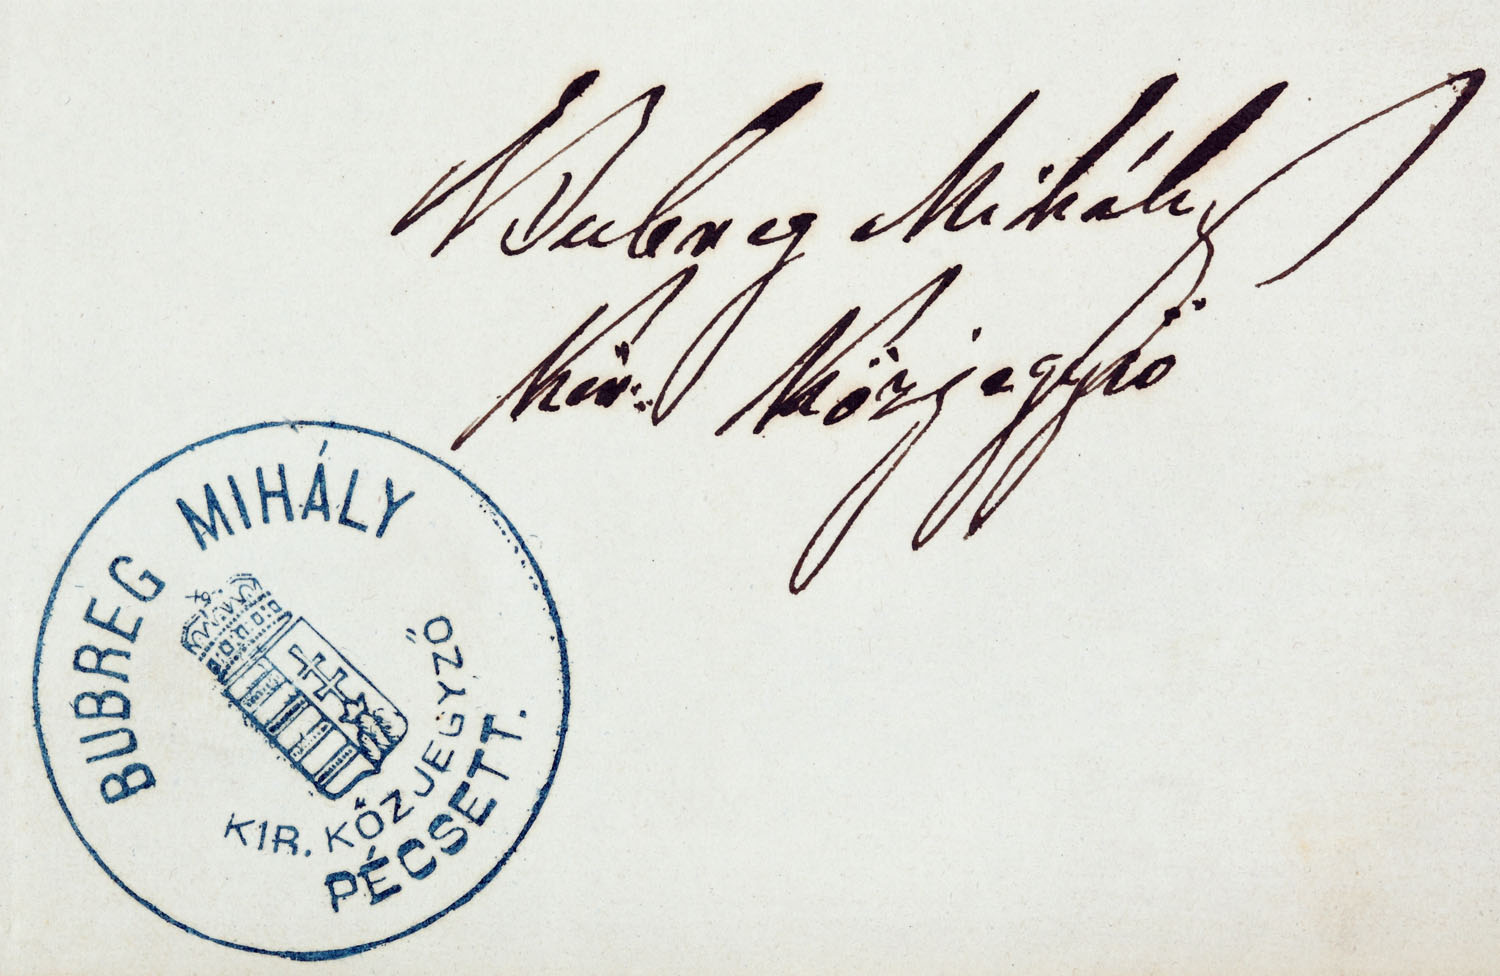 Bubreg Mihály
kir. közjegyző
BUBREG MIHÁLY
KIR. KŐZJEGYZŐ
PÉCSETT.